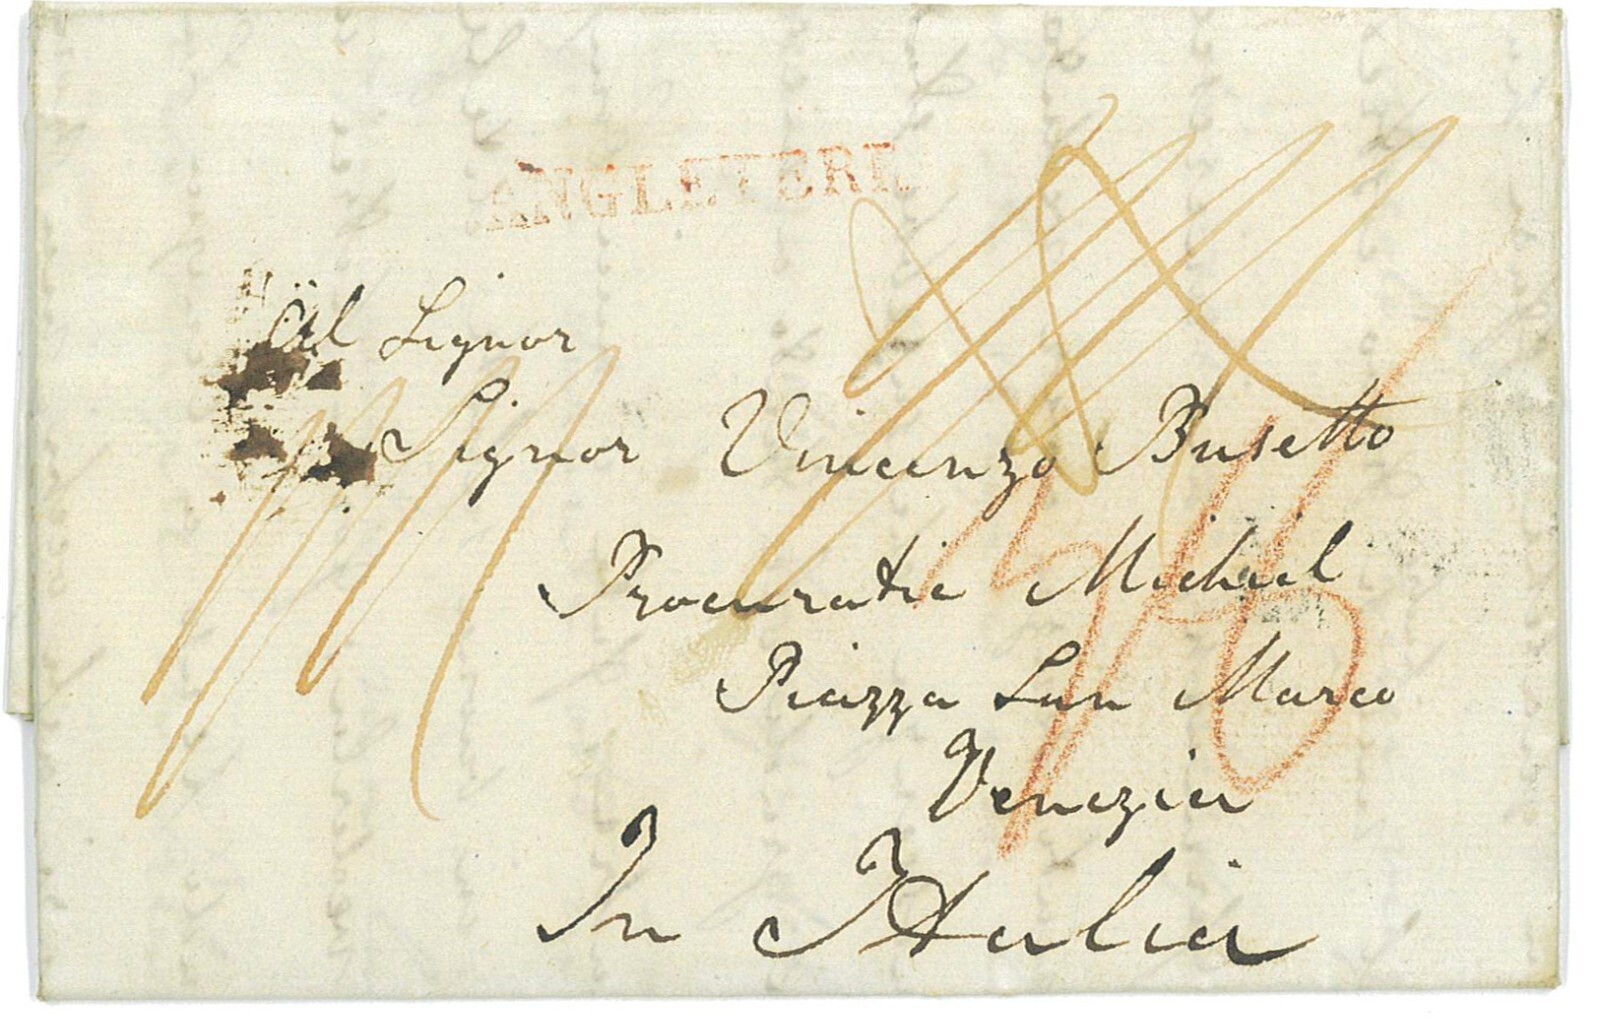 ANGLETERR
Al Signor
Signor Vincenzo Busetto
Procuratie Michiel
Piazza San Marco
Venezia
In Italia